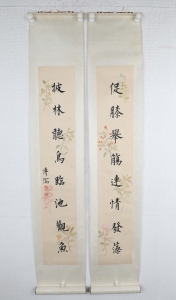 促膝舉觴連情發藻
披林聽鳥臨池觀魚